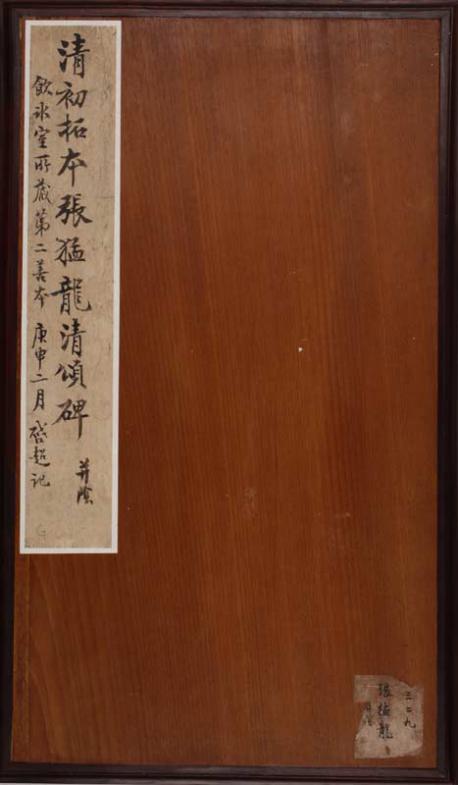 清初拓本張猛龍清頌碑 并陰
飲冰室所藏第二善本 庚申二月 啓超記
三二九
張猛龍